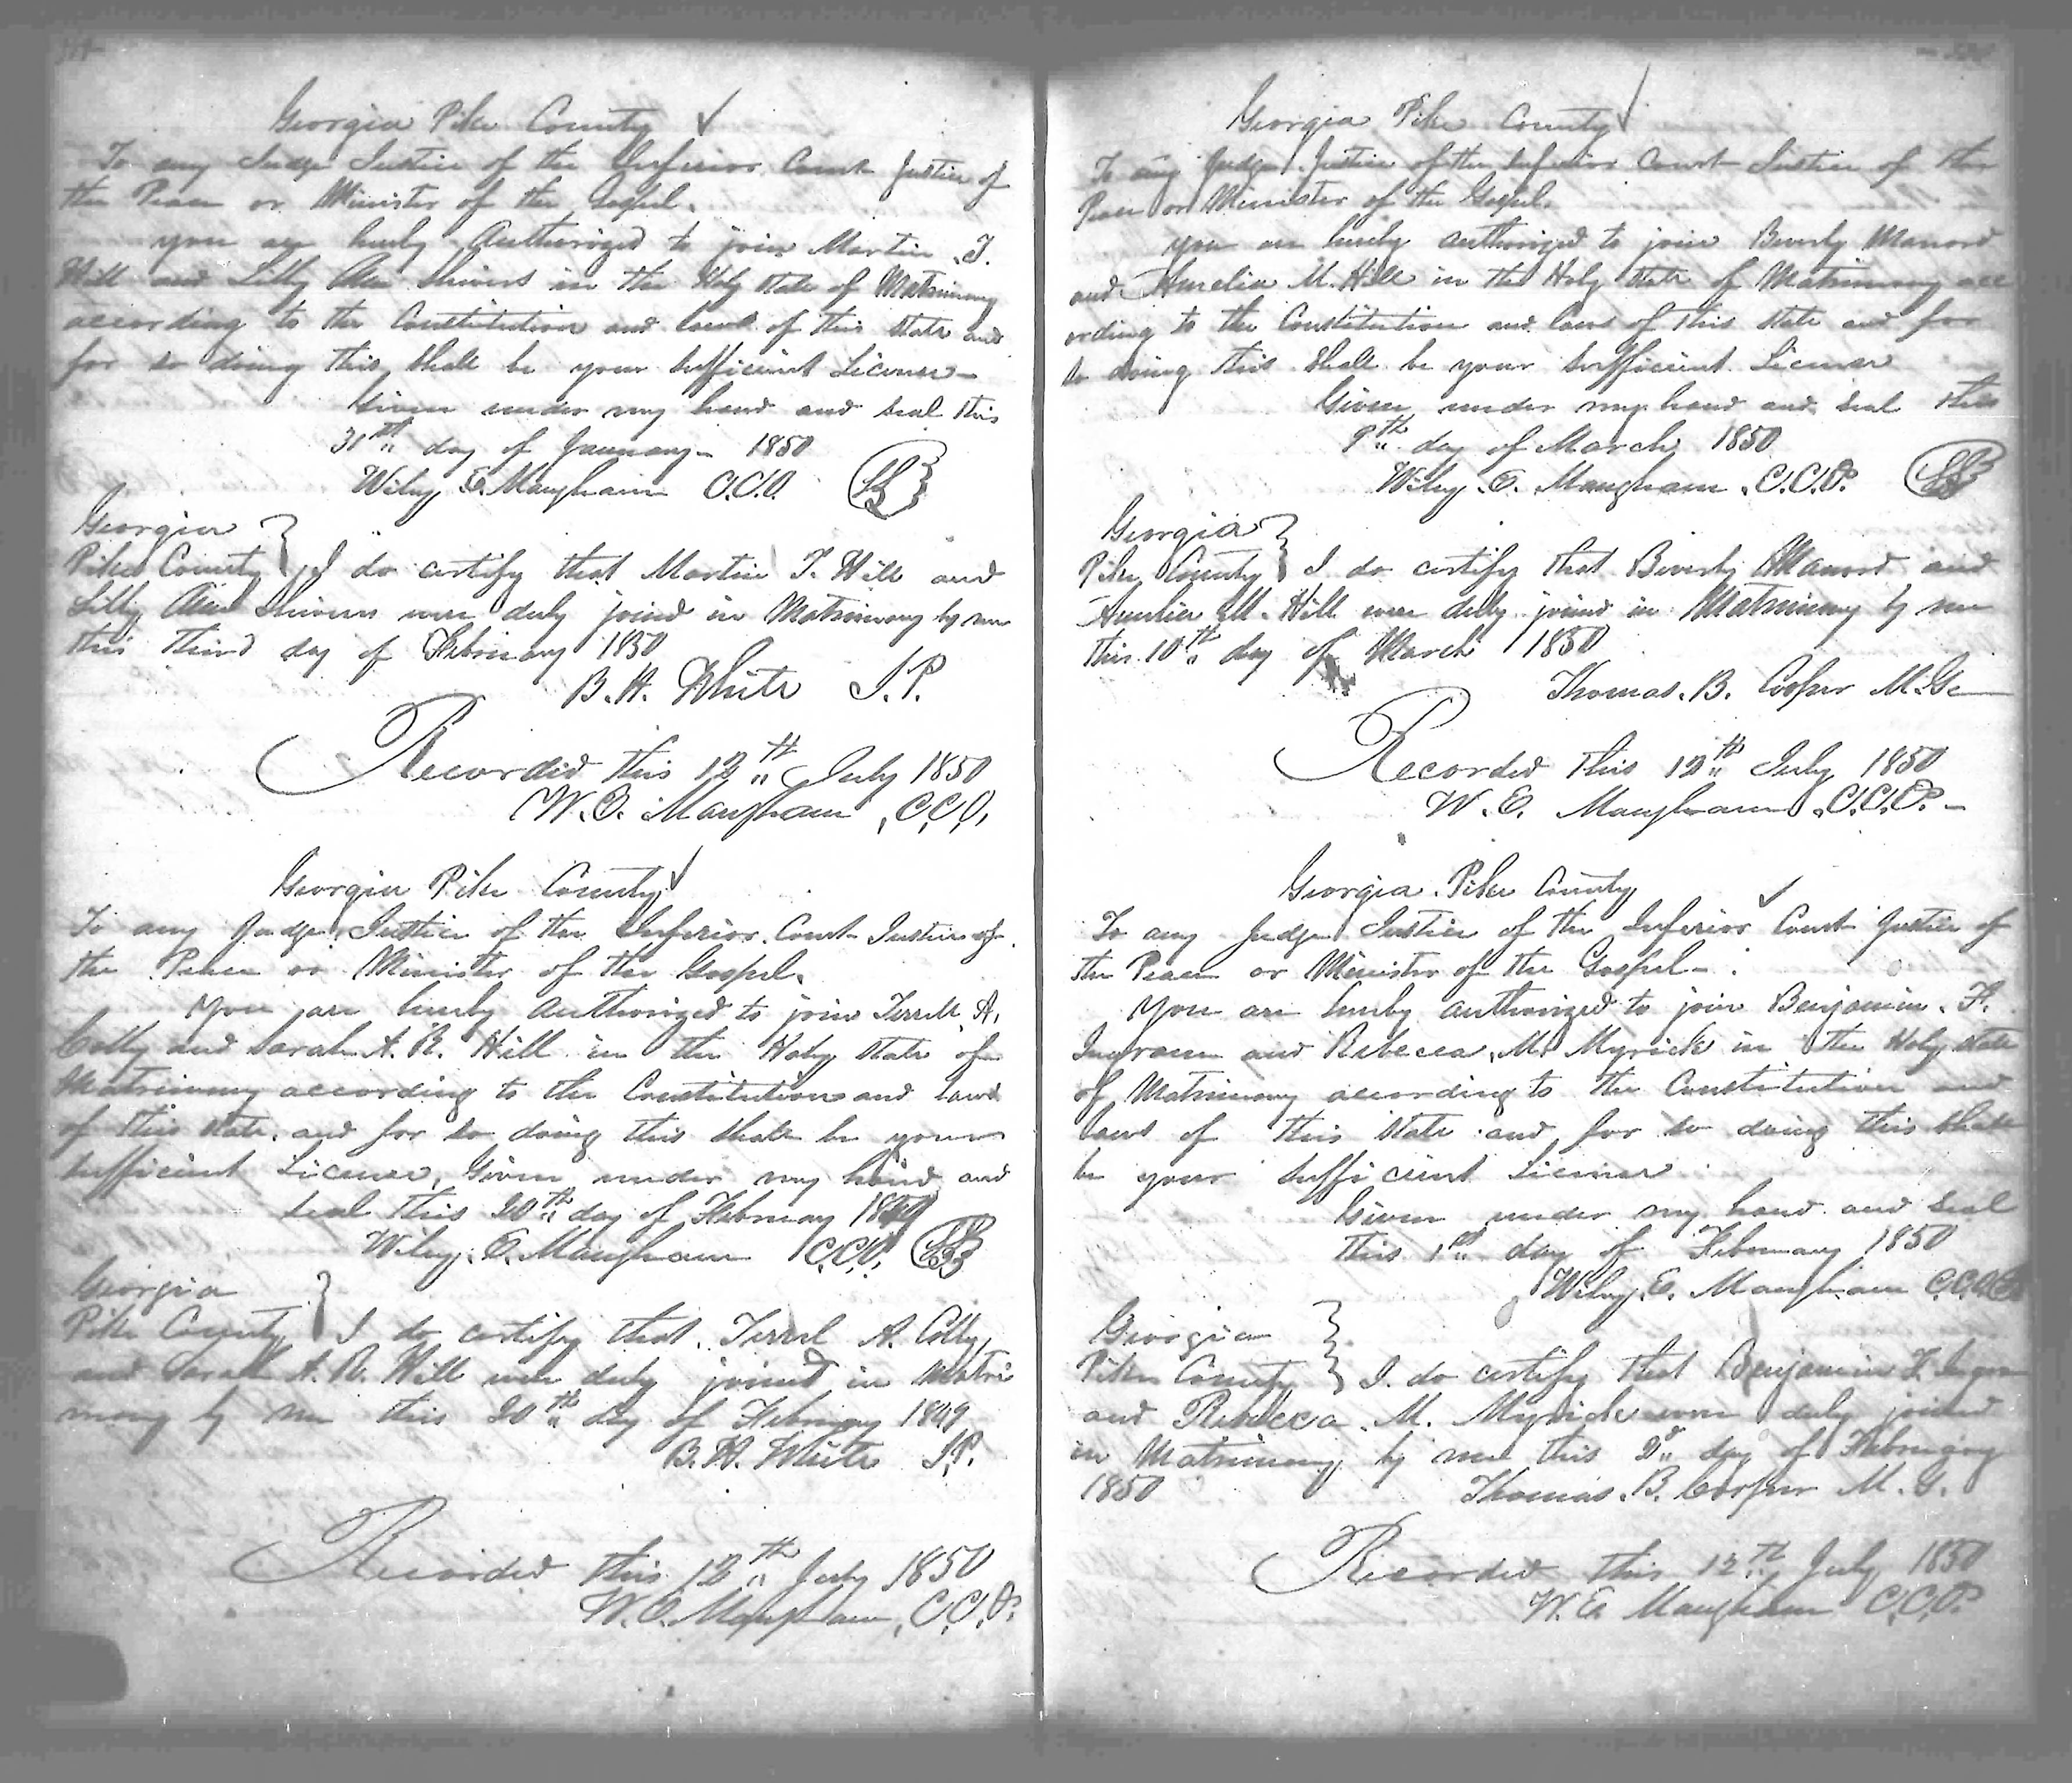 Georgia Pike County
To any Judge Justice of the Inferior Court Justice of
the Peace or Minister of the Gospel.
you are hereby Authorized to join Martin T.
Hill and Lilly Ann Shivers in the Holy state of Matrimony
according to the Constitution and laws of this state and
for so doing this shall be your sufficient License
Given under my hand and seal this
31st day of January 1850
Wiley E. Mangham C.C.O.
Georgia
Pike County I do certify that Martin T. Hill and
Lilly Ann Shivers were duly joined in Matrimony by me
this third day of February 1850
B. H. White J.P.
Recorded this 12th July 1850
W. E. Mangham C.C.O.
Georgia Pike County
To any Judge Justice of the Inferior Court Justice of
the Peace or Minister of the Gospel.
You are hereby Authorized to join Terrell A.
Colly and Sarah A. R. Hill in the Holy state of
Matrimony according to the Constitution and laws
of this state, and for so doing this shall be your
sufficient License, Given under my hand and
seal this 20th day of February 1849
Wiley E. Mangham C.C.O.
Georgia
Pike County I do certify that Terrel A. Colly
and Sarah A. R. Hill were duly joined in Matri
mony by me this 20th day of February 1849
B. H. White J.P.
Recorded this 12th July 1850
W. E. Mangham, C.C.O.
Georgia Pike County
To any Judge Justice of the Inferior Court Justice of the
Peace or Minister of the Gospel.
you are hereby authorized to join Beverly Manord
and Aurelia M. Hill in the Holy state of Matrimony acc
ording to the Constitution and laws of this state and for
so doing this shall be your sufficient License
Given under my hand and seal this
9th day of March 1850
Wiley E. Mangham C.C.O.
Georgia
Pike County I do certify that Beverly Manord and
Aurelia M. Hill were duly joined in Matrimony by me
this 10th day of March 1850
Thomas B. Cooper M.G.
Recorded this 12th July 1850
W. E. Mangham C.C.O.
Georgia Pike County
To any Judge Justice of the Inferior Court Justice of
the Peace or Minister of the Gospel
You are hereby authorized to join Benjamin F.
Ingram and Rebecca M. Myrick in the Holy state
of Matrimony according to the Constitution and
laws of this state and for so doing this shall
be your sufficient License
Given under my hand and seal
this 1st day of February 1850
Wiley E. Mangham C.C.O.
Georgia
Pike County I do certify that Benjamin F. Ingram
and Rebecca M. Myrick were duly joined
in Matrimony by me this 2d day of February
1850 Thomas B. Cooper M. G.
Recorded this 12th July 1850
W. E. Mangham C.C.O.